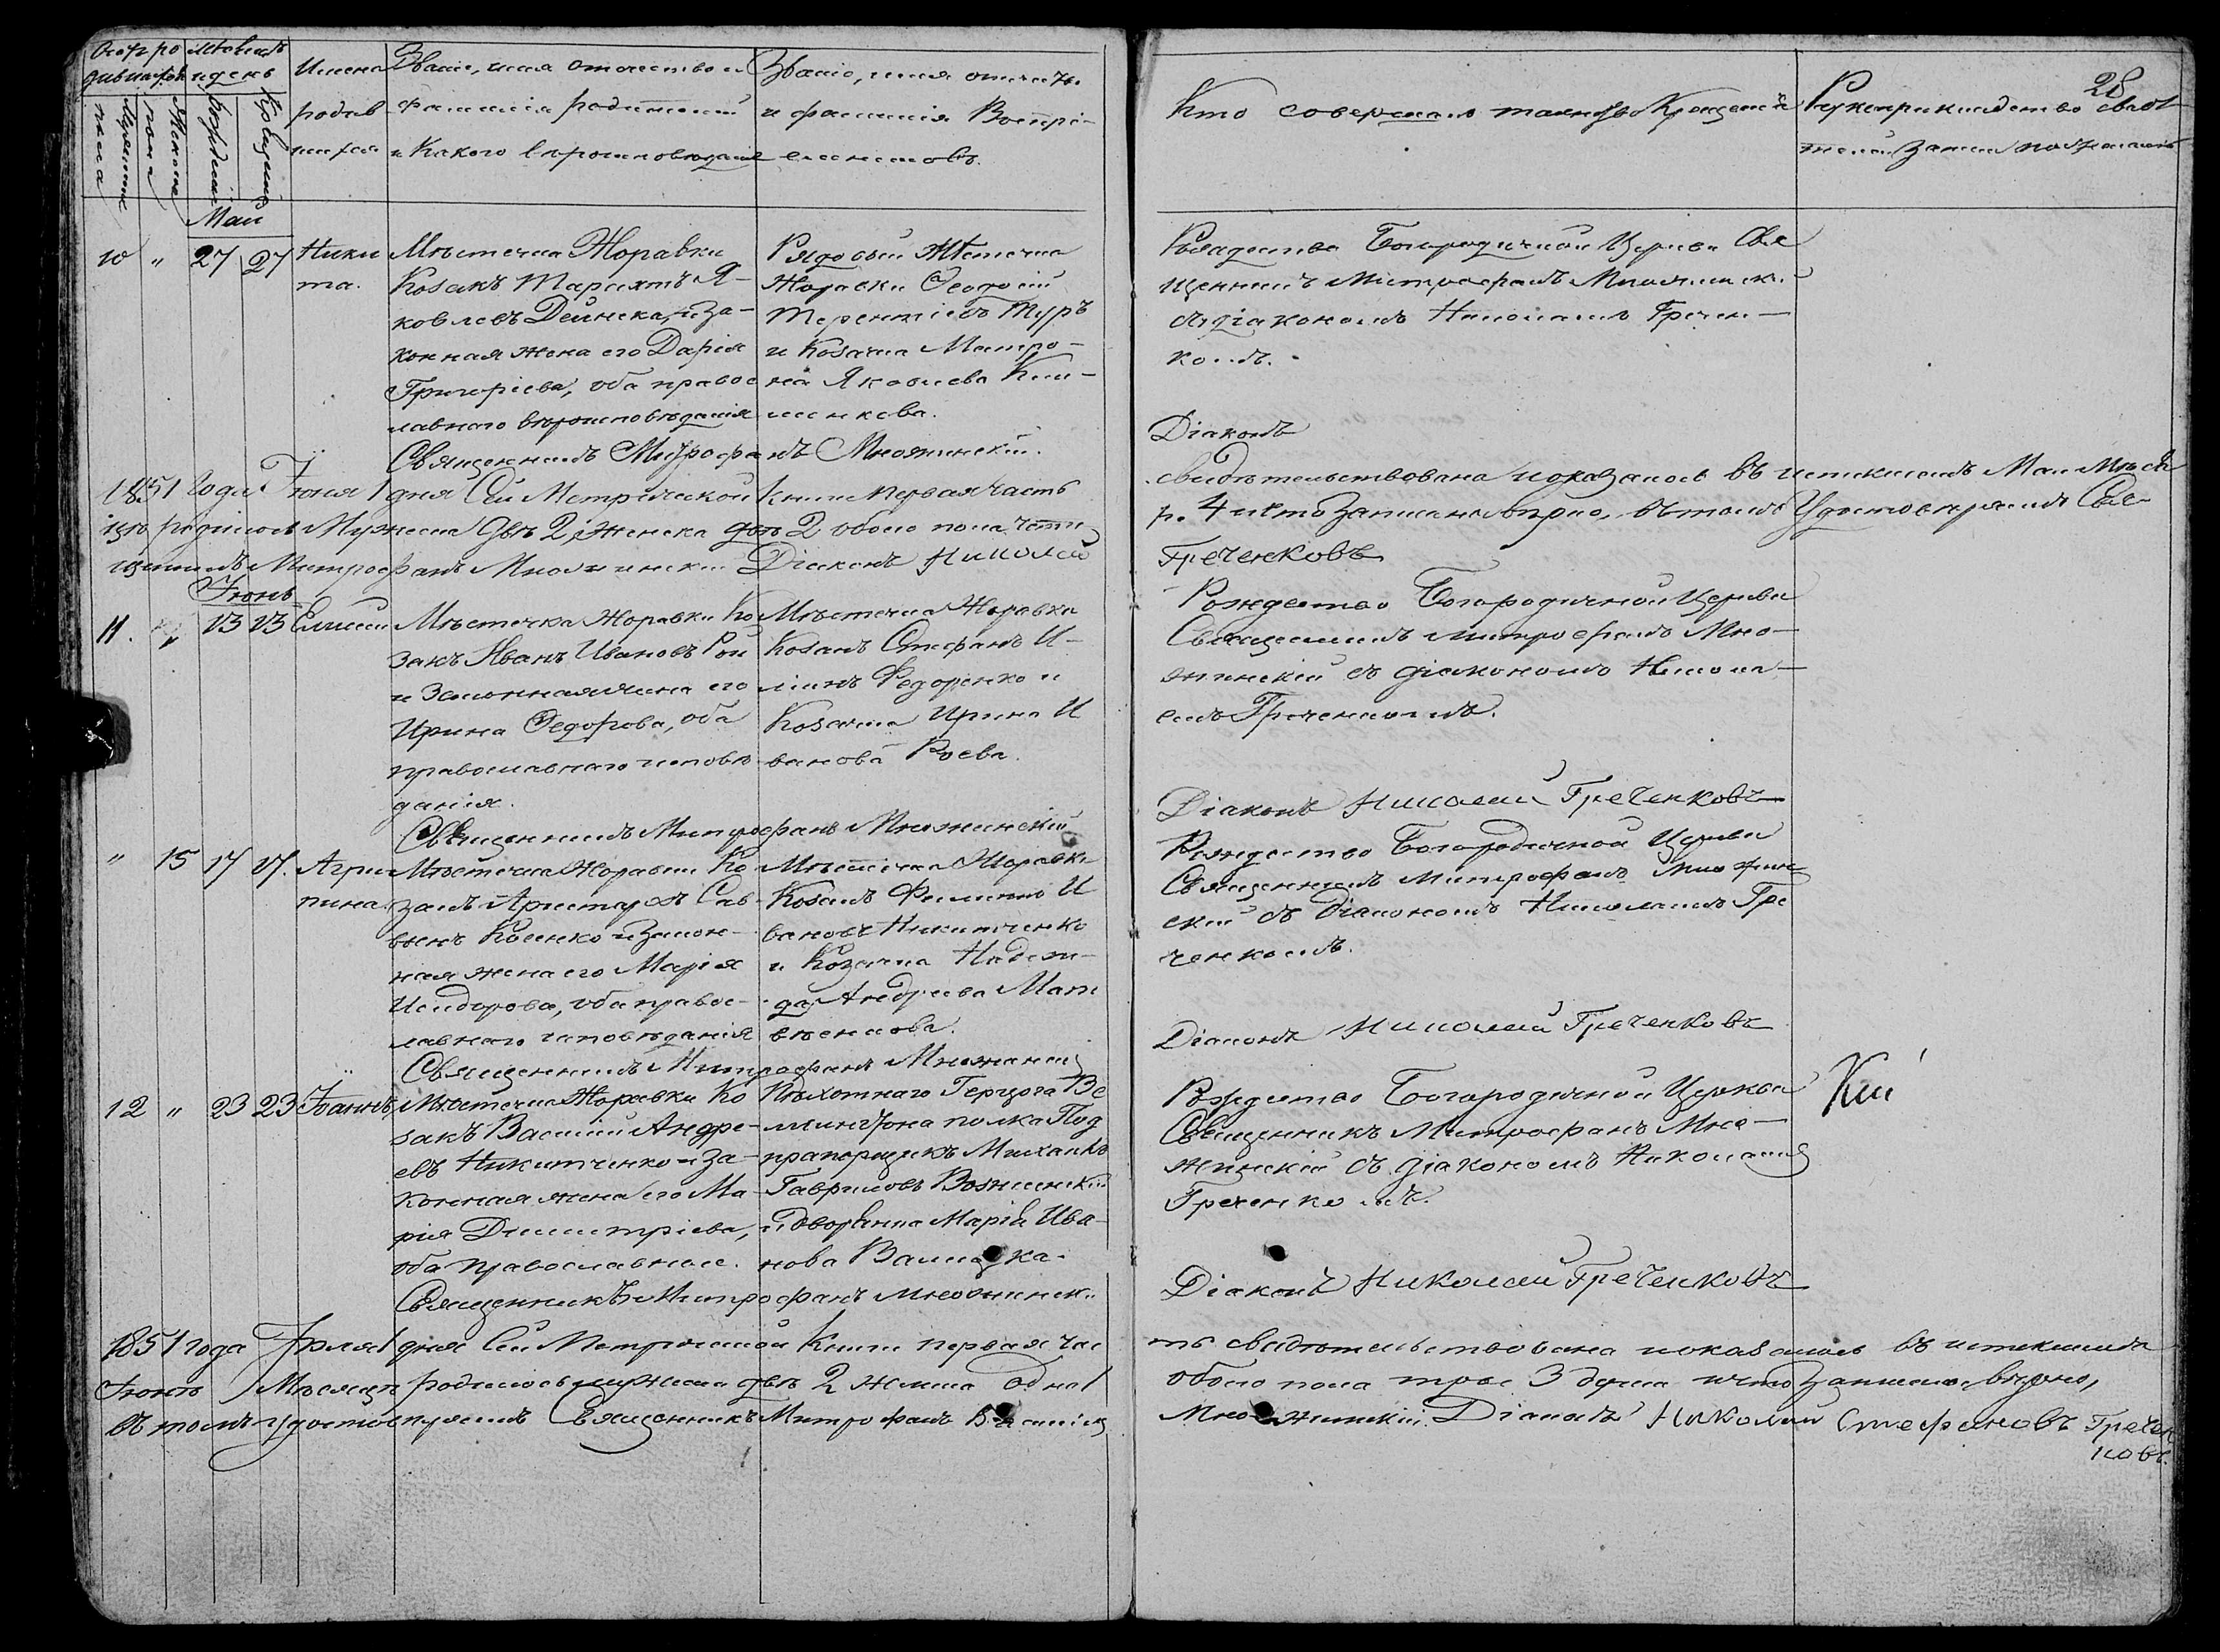 28
Мѣсяцъ
и день
Имена
родив
шихся
Званіе, имя отчество и
фамилія родителей
и какого вѣроисповѣданія
Званіе, имя отчество
и фамилія Воспрі-
емниковъ.
Кто совершалъ таинство Крещенія
Рукоприкладство свидѣ
телей записи по желанію
Май
10 " 27 27 Ники
та.
Мѣстечка Жоравки
Козакъ Тарахтъ Я-
ковлевъ Дейнека, и за-
конная жена его Дарія
Григоріева, оба правос
лавнаго вѣроисповѣданія
Рядовый Мѣстечка
Жоравки Феодосій
Терентіевъ Туръ
и Козачка Матро-
на Яковлева
Рождество Богородичной Церкви Свя
щенникъ Митрофанъ Множинскій
съ діакономъ Николаемъ Гречен-
комъ.
Священникъ Митрофанъ Множинскій.
Діаконъ
1851 года Іюня 1 дня Сей Метрической книги первая часть
свидѣтельствована и оказалось въ истекшемъ Маи Мѣся
цѣ родилось Мужеска двѣ 2, Женска двѣ 2 обоего пола чети
р. 4 и что записано вѣрно, въ томъ удостовѣряемъ Свя-
щенникъ Митрофанъ Множинскій Діаконъ Николай
Греченковъ
Іюнь
11. " 13 13 Елисей
Мѣстечка Жоравки Ко
закъ Иванъ Ивановъ Рой
и Законная жена его
Ирина Федорова, оба
православнаго исповѣ
данія.
Мѣстечка Жоравки
Козакъ Стефанъ И-
льинъ Федоренко и
Козачка Ирина И
ванова Роева.
Рождество Богородичной Церкви
Священникъ Митрофанъ Мно-
жинскій съ діакономъ Никола-
емъ Греченкомъ.
Священникъ Митрофанъ Множинскій
Діаконъ Николай Греченковъ
" 15 17 17. Агрип
пина.
Мѣстечка Жоравки Ко
закъ Аристархъ Сав-
винъ Коленко и Закон-
ная жена его Марія
Исидорова, оба право-
лавнаго исповѣданія
Мѣстечка Жоравки
Козакъ Филиппъ И
вановъ Никитченко
и Козачка Надеж-
да Андреева Мат
вѣенкова.
Рождество Богородичной Церкви
Священникъ Митрофанъ Множин
скій съ Діакономъ Николаемъ Гре
ченкомъ.
Священникъ Митрофанъ Множинскій
Діаконъ Николай Греченковъ
12 " 23 23 Іоаннъ
Мѣстечка Жоравки Ко
закъ Василій Андре-
евъ Никитченко и За-
конная жена его Ма
рія Димитріева,
оба православные.
Пѣхотнаго Герцога Ве
лингтона полка Под
прапорщикъ Михаилъ
Гавриловъ
и Дворянка Марія Ива-
нова
Рождество Богородичной Церкви
Священникъ Митрофанъ Мно-
жинскій съ діакономъ Николаемъ
Греченкомъ.
Священникъ Митрофанъ Множинскій
Діаконъ Николай Греченковъ
1851 года Іюля 1 дня Сей Метрической Книги первая час
ть свидѣтельствована и оказалось въ истекшемъ
Іюнѣ Мѣсяцѣ родилось мужеска двѣ 2 женска одна 1
обоего пола трое 3 душа и что записано вѣрно,
въ томъ удостовѣряемъ Священникъ Митрофанъ
Множинскій. Діаконъ Николай Стефановъ Гречен
ковъ.